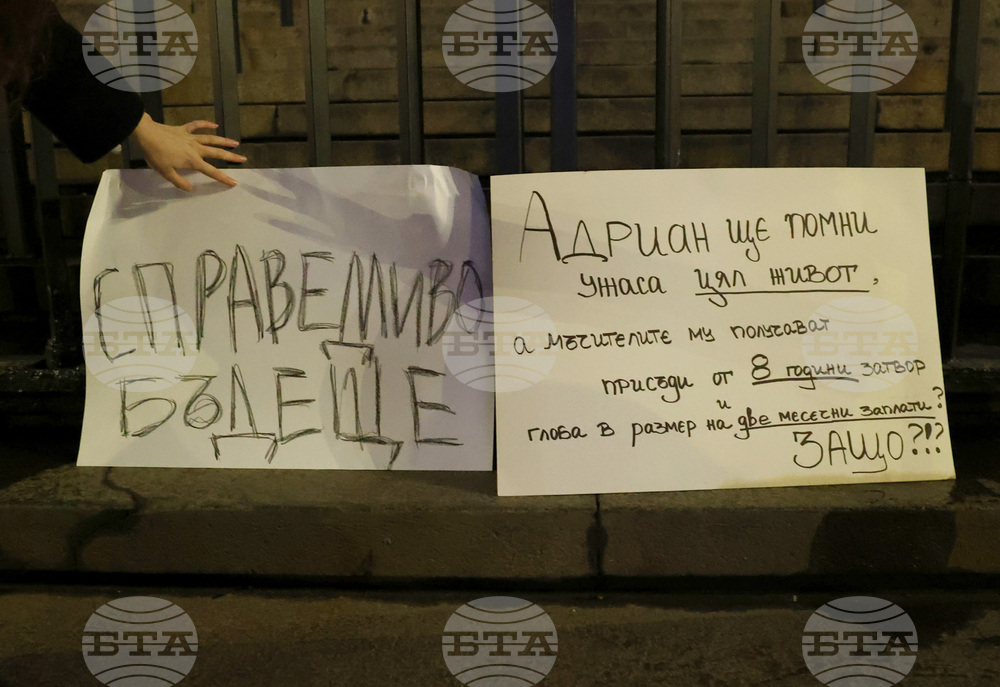 БТА БТА БТА
СПРАВЕДЛИВО
БЪДЕЩЕ
АДРИАН ЩЕ ПОМНИ
УЖАСА ЦЯЛ ЖИВОТ,
а мъчителите му получават
присъди от 8 години затвор
и
глоба в размер на две месечни заплати?
ЗАЩО?!?
БТА БТА БТА
БТА БТА БТА